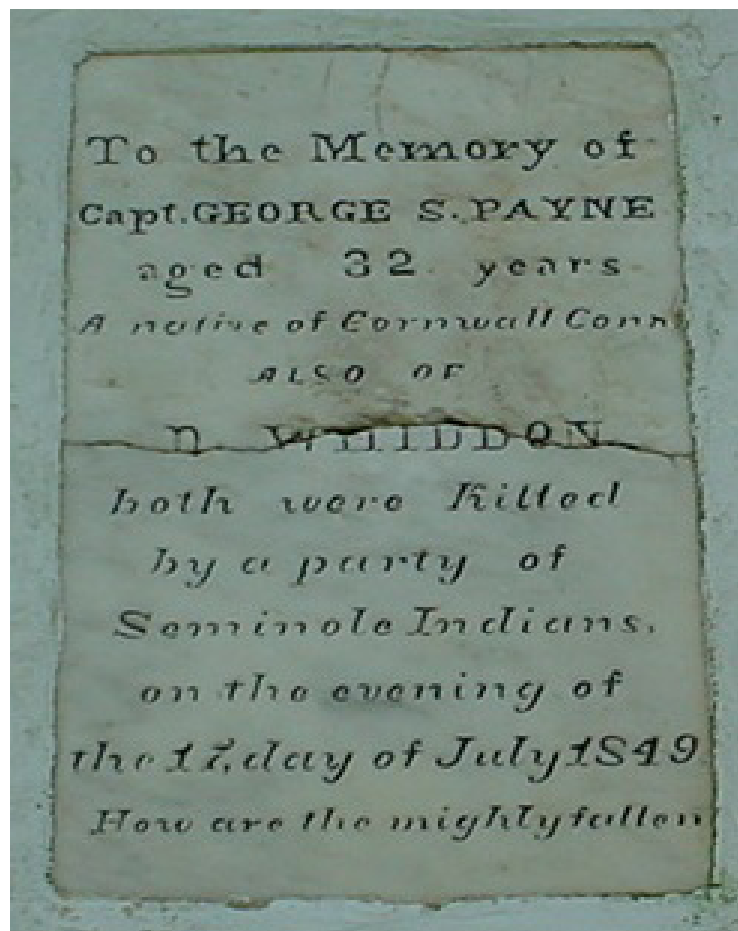 To the Memory of
Capt. GEORGE S. PAYNE
aged 32 years
A native of Cornwall Conn
ALSO OF
D. WHIDDON
both were Killed
by a party of
Seminole Indians.
on the evening of
the 17, day of July 1849
How are the mighty fallen